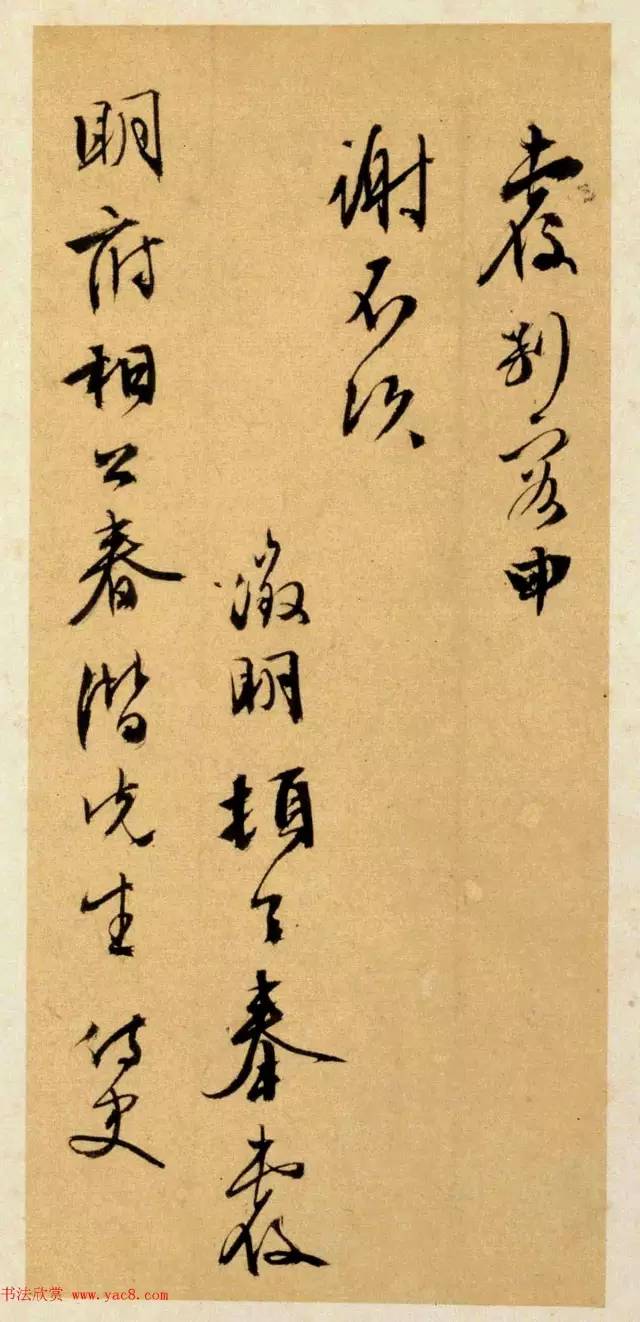 覆别容申
謝不次
徵明頓首奉覆
明府相公春潛先生 侍史
书法欣赏 www.yac8.com